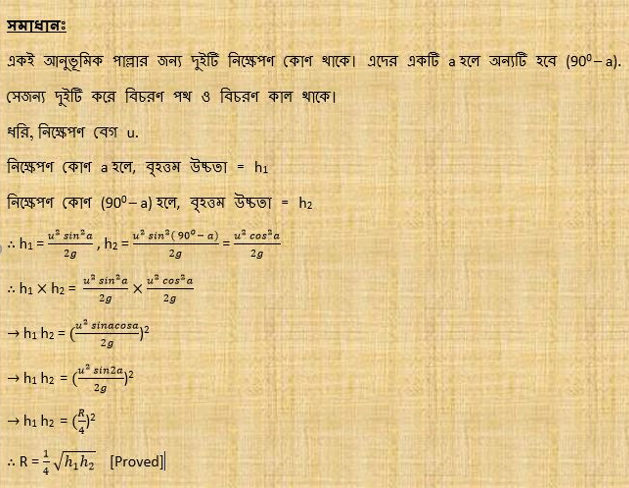 সমাধানঃ
একই আনুভূমিক পাল্লার জন্য দুইটি নিক্ষেপণ কোণ থাকে। এদের একটি a হলে অন্যটি হবে (90⁰ – a).
সেজন্য দুইটি করে বিচরণ পথ ও বিচরণ কাল থাকে।
ধরি, নিক্ষেপণ বেগ u.
নিক্ষেপণ কোণ a হলে, বৃহত্তম উচ্চতা = h₁
নিক্ষেপণ কোণ (90⁰ – a) হলে, বৃহত্তম উচ্চতা = h₂
∴ h₁ = \frac{u² sin²a}{2g} , h₂ = \frac{u² sin²(90⁰ – a)}{2g} = \frac{u² cos²a}{2g}
∴ h₁ × h₂ = \frac{u² sin²a}{2g} × \frac{u² cos²a}{2g}
→ h₁ h₂ = (\frac{u² sinacosa}{2g})²
→ h₁ h₂ = (\frac{u² sin2a}{2g})²
→ h₁ h₂ = (\frac{R}{4})²
∴ R = \frac{1}{4} \sqrt{h₁h₂} [Proved]